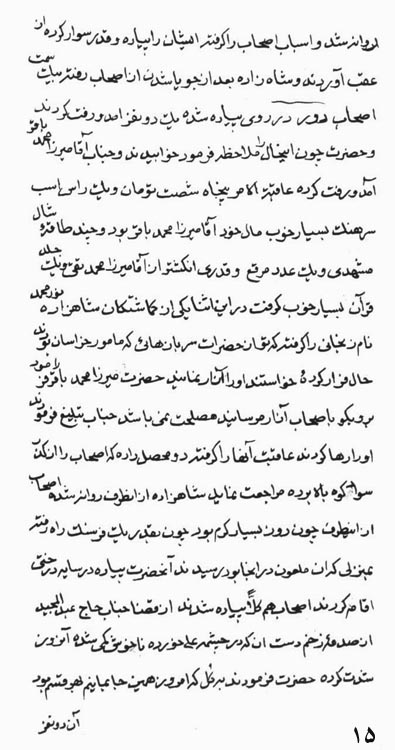 روانه شد و اسباب اصحاب را گرفتند ایشان را پیاده و قدری سوار کرده از
عقب آوردند و شاه زاده بعد از جویا شدن از اصحاب رفتند سمت
اصحاب در روی پیاده شده یک دو نفر آمد و رفت کردند
و حضرت چون ایحال را ملاحظه فرمود خوابیدند و جناب آقا میرزا محمد باقر
آمد و رفت کرده عاقبة الامر پنجاه شصت تومان و یک راس اسب
سرهنگ بسیار خوب مال خود آقا میرزا محمد باقر بود و چند طاقه شال
مشهدی و یک عدد مرقع و قدری انگشتر از آقا میرزا محمد تقی و یک جلد
قرآن بسیار خوب گرفت در این اثنا یکی از گماشتگان شاهزاده نور محمد
نام زنجانی را گرفتند که از حضرات سربازهائی که مامور خراسان بودند
حال فرار کرده خواستند او را آزار نمایند حضرت میرزا محمد باقر را فرمود
برو بگو با صحاب آزار مرسانید مصلحت نمی باشد جناب تبلیغ فرمودند
او را رها کردند عاقبت آنها را گرفتند دو محصل داده که اصحاب را از
سواد کوه بالا برده مراجعت نماید شاهزاده از انطرف روانه شده اصحاب
از انطرف چون روز بسیار گرم بود چون بقدر یک فرسنگ راه رفتند
بمنزلی که ان ملعون در انجا بود رسیدند آنحضرت پیاده در سایه درختی
اقامه کردند اصحاب هم کلاً پیاده شدند از قضا جناب حاج عبد المجید
از صدمه زخم دست ان که در چشمه علی خورده ناخوش شده آنروز
شدت کرده حضرت فرمودند به گل که امروز همین جا بمانیم بهر قسم بود
آن دو نفر
۱۵